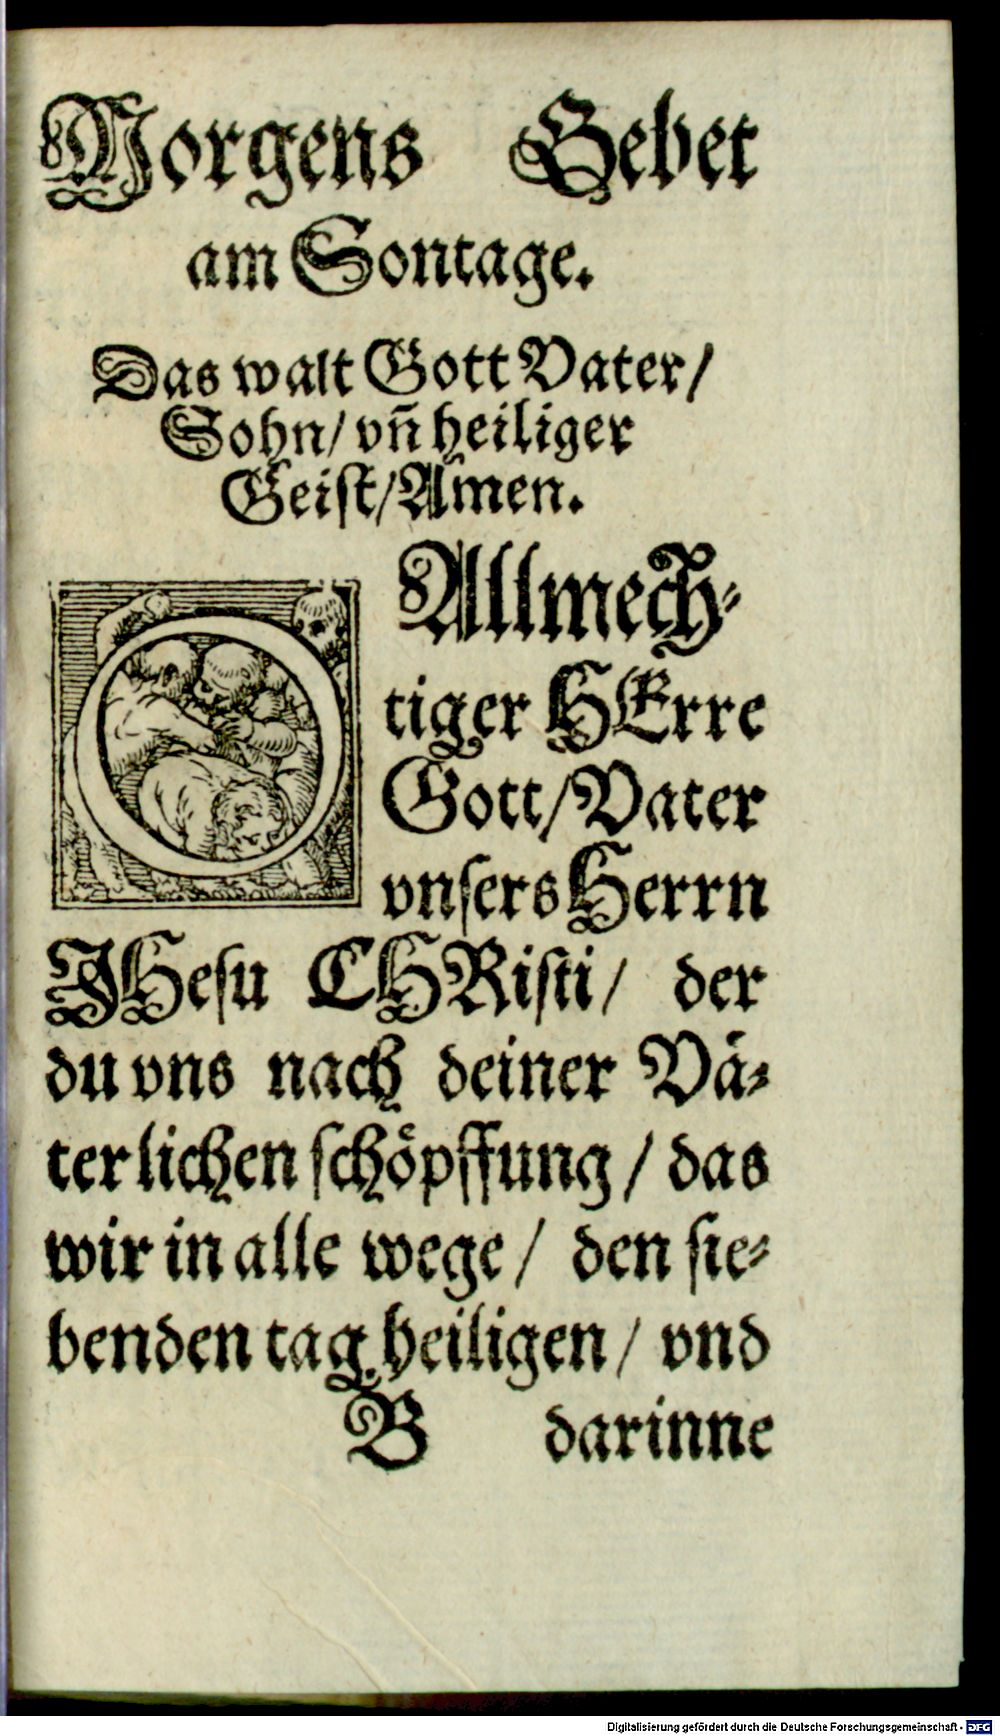 Morgens Gebet
am Sontage.
Das walt Gott Vater/
Sohn/ vñ heiliger
Geist/ Amen.
O Allmech-
tiger HErre
Gott/ Vater
vnsers Herrn
JHesu CHRisti/ der
du vns nach deiner Vä-
terlichen schöpffung/ das
wir in alle wege/ den sie-
benden tag heiligen/ vnd
B darinne
Digitalisierung gefördert durch die Deutsche Forschungsgemeinschaft - DFG